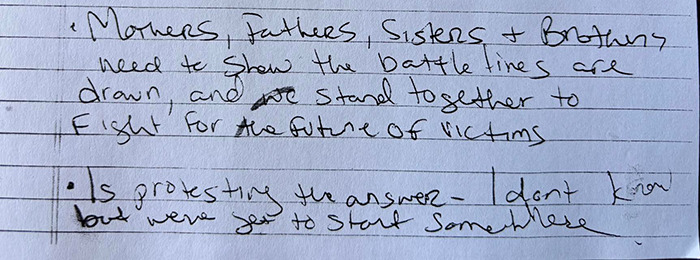 • Mothers, Fathers, Sisters + Brothers
need to show the battle lines are
drawn, and we stand together to
Fight for the future of victims
• Is protesting the answer - I dont know
but weve got to start somewhere